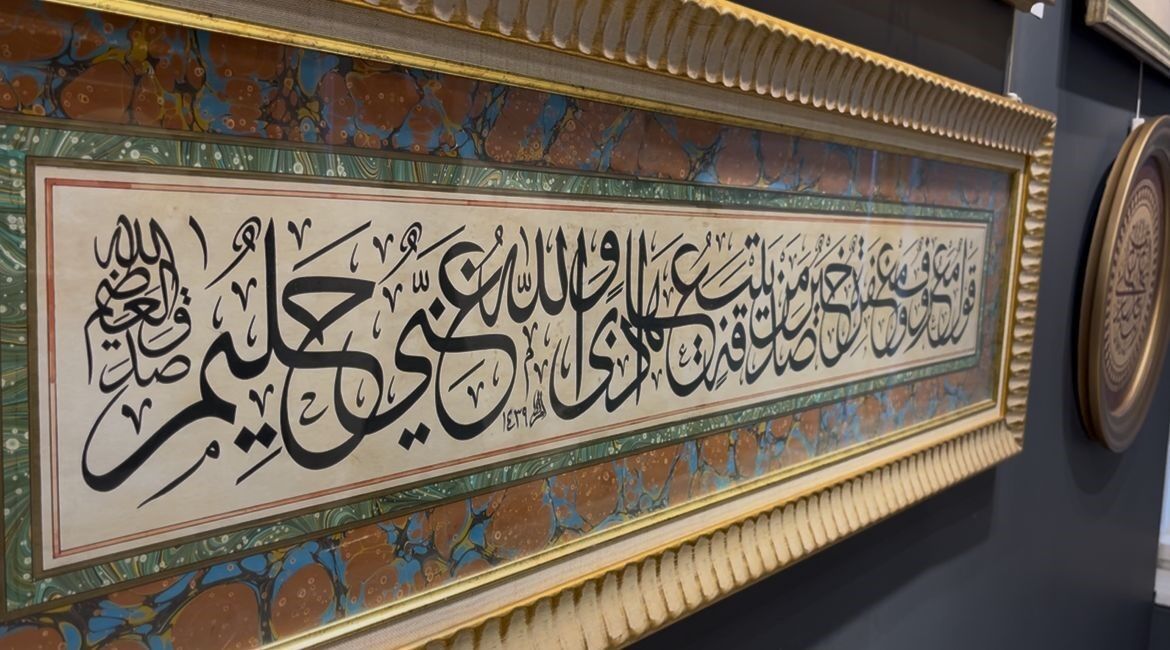 قَوْلٌ مَعْرُوفٌ وَمَغْفِرَةٌ خَيْرٌ مِنْ صَدَقَةٍ يَتْبَعُهَا أَذًى وَاللّٰهُ غَنِيٌّ حَلِيمٌ
صدق الله العظيم
١٤٣٩